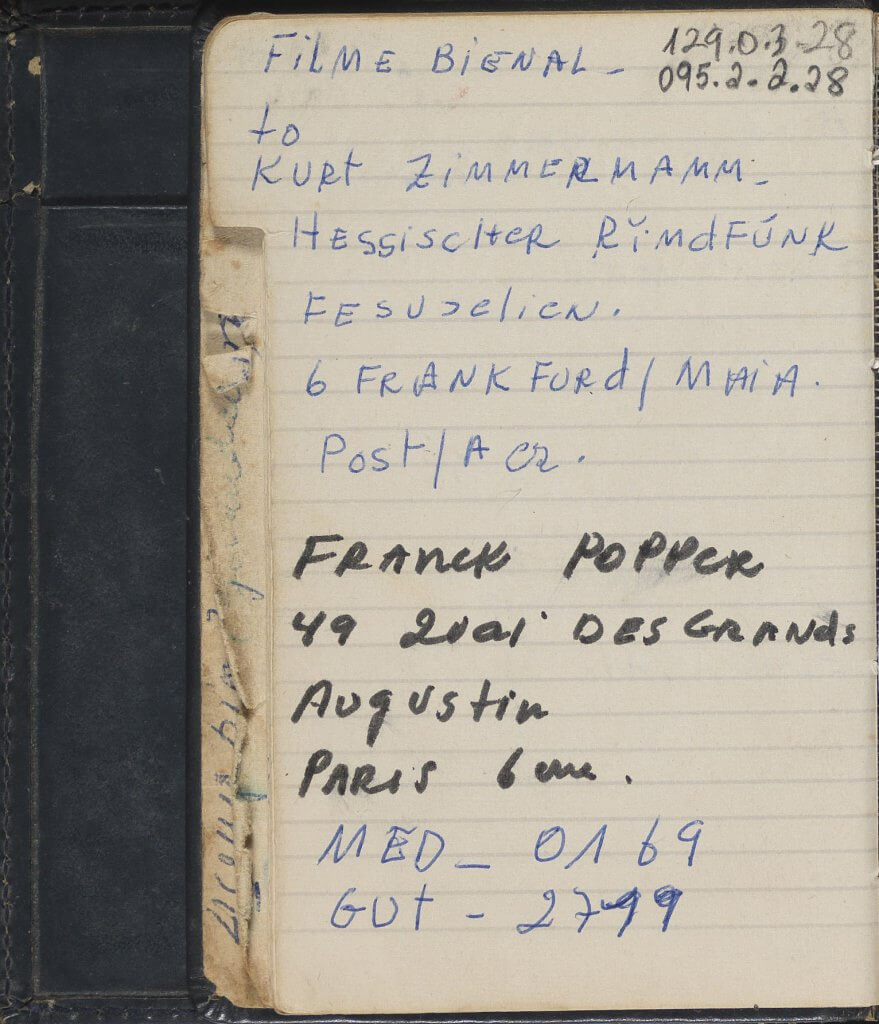 FiLME BiENAL - 129.0.3-28
095.2.2.28
to
KURt ZiMMERMAMM -
HESSiSCHER RimdFÚNK
FESUSELiEN.
6 FRANKFURd / MAiA.
Post/A
FRANCK POPPER
49 QUai DES GRANds
AUgUStin
PARIS 6 eme.
MED - 0169
GUt - 2799